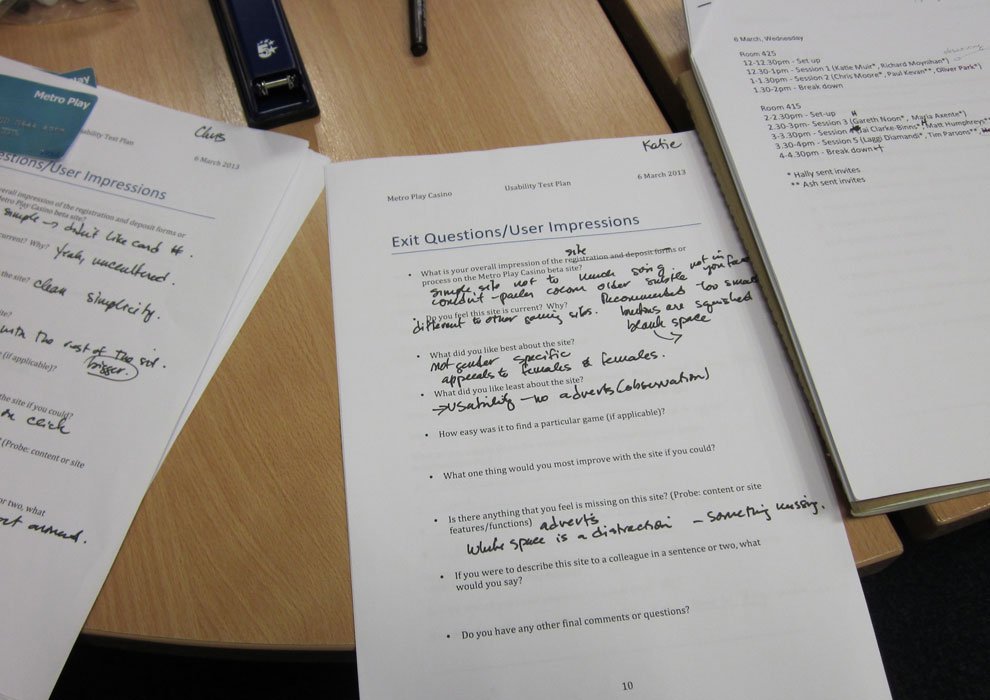 Metro Play
Usability Test Plan
Chris
6 March 2013
estions/User Impressions
overall impression of the registration and deposit forms or
Metro Play Casino beta site?
simple → didn't like card #.
current? Why? Yeah, uncluttered.
the site? clean simplicity.
site?
with the rest of the site.
bigger.
(if applicable)?
the site if you could?
one click
(Probe: content or site
or two, what
out around.
Katie
Metro Play Casino Usability Test Plan 6 March 2013
Exit Questions/User Impressions
site
• What is your overall impression of the registration and deposit forms or
process on the Metro Play Casino beta site?
simple site not to much going. not in
colour older subtle your face
• Do you feel this is current? Why? Recommended - too small
different to other gaming sites. buttons are squished
blank space
• What did you like best about the site?
not gender specific
appeals to females & females.
• What did you like least about the site?
→ Usability - no adverts (observation)
• How easy was it to find a particular game (if applicable)?
• What one thing would you most improve with the site if you could?
• Is there anything that you feel is missing on this site? (Probe: content or site
features/functions) adverts
White space is a distraction - something missing.
• If you were to describe this site to a colleague in a sentence or two, what
would you say?
• Do you have any other final comments or questions?
10
6 March, Wednesday
Room 425
12-12.30pm - Set up
12.30-1pm - Session 1 (Katie Muir*, Richard Moynihan*)
1-1.30pm - Session 2 (Chris Moore*, Paul Kevan**, Oliver Park*)
1.30-2pm - Break down
Room 415
2-2.30pm - Set-up H
2.30-3pm - Session 3 (Gareth Noon*, Maria Axente*)
3-3.30pm - Session Clarke-Binns* Matt Humphreys**
3.30-4pm - Session 5 (Laggi Diamandi*, Tim Parsons**,
4-4.30pm - Break down
* Hally sent invites
** Ash sent invites